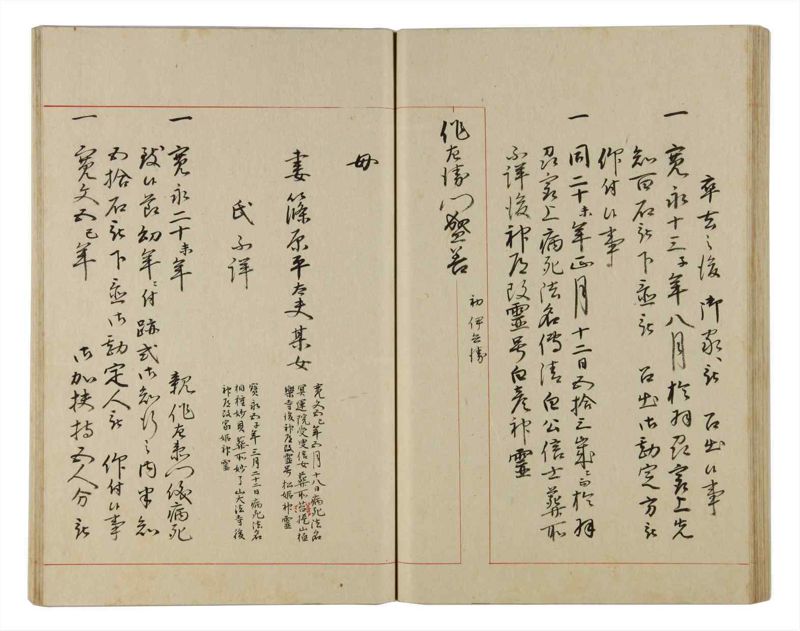 卒去之後御家被 召出候事
一 寛永十三子年八月於羽刕㝡上先
知百石被下置被 召出御勘定方被
仰付候事
一 同二十未年正月十二日五拾三歳ニ而於羽
刕㝡上病死法名傳清白公信士葬所
不詳後神道改靈号白彦神靈
作左衛門盛善
初 伊兵衛
母
妻 篠原平太夫某女
寛文五巳年五月十八日病死法名
冥運院受信女葬所菩提山極
樂寺後神道改靈号松姫神靈
氏不詳
寳永五子年三月二十二日病死法名
相種妙貝葬所妙了山大法寺後
神道改家姫神靈
一 寛永二十未年 親作左衛門儀病死
致候節幼年ニ付跡式御知行之内半知
五拾石被下置御勘定人被 仰付候事
一 寛文五巳年 御加扶持五人分被